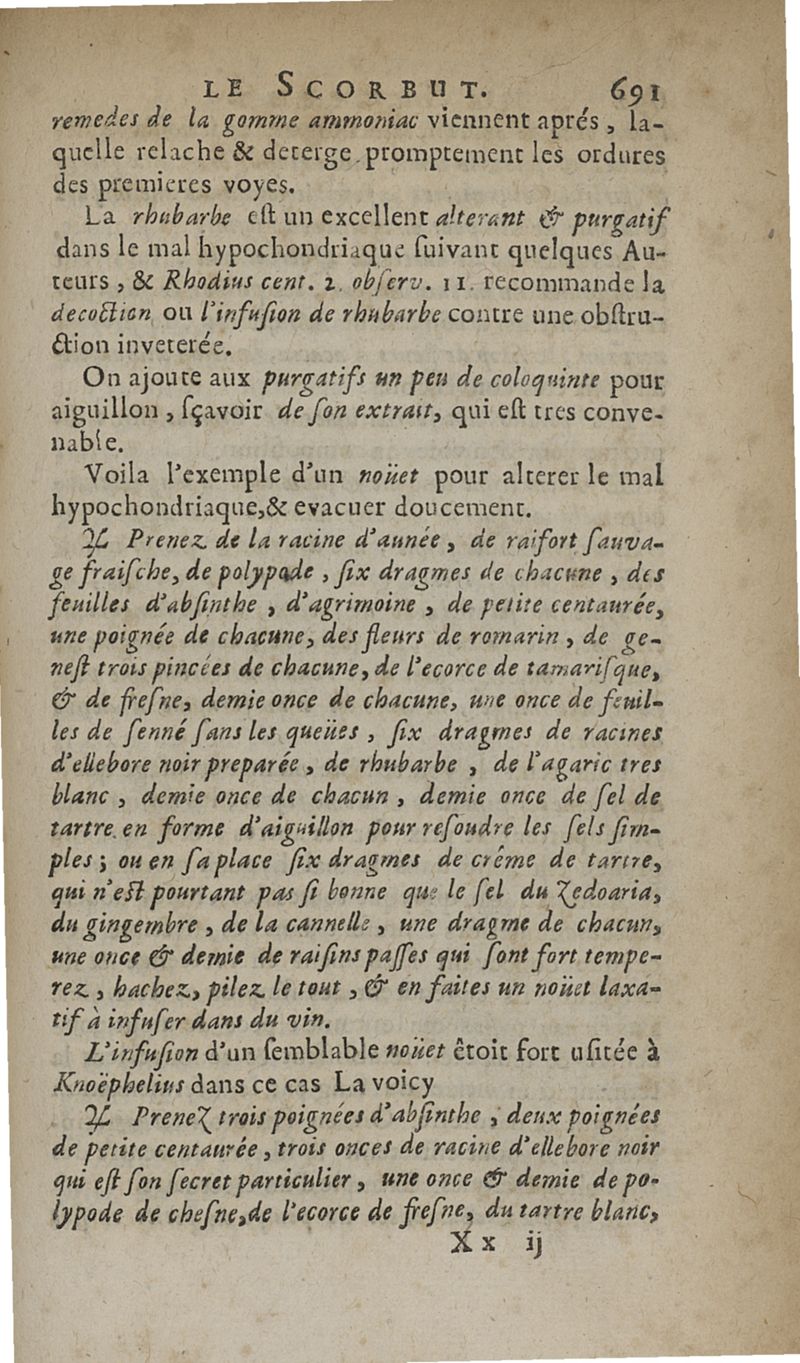 LE SCORBUT. 691
remedes de la gomme ammoniac viennent aprés, la-
quelle relache & deterge promptement les ordures
des premieres voyes.
La rhubarbe eſt un excellent alterant & purgatif
dans le mal hypochondriaque ſuivant quelques Au-
teurs, & Rhodius cent. 2. obſerv. 11. recommande la
decoction ou l'infuſion de rhubarbe contre une obſtru-
ction inveterée.
On ajoute aux purgatifs un peu de coloquinte pour
aiguillon, ſçavoir de ſon extrait, qui eſt tres conve-
nable.
Voila l'exemple d'un noüet pour alterer le mal
hypochondriaque,& evacuer doucement.
♃ Prenez de la racine d'aunée, de raifort ſauva-
ge fraiſche, de polypode, ſix dragmes de chacune, des
feuilles d'abſinthe, d'agrimoine, de petite centaurée,
une poignée de chacune, des fleurs de romarin, de ge-
neſt trois pincées de chacune, de l'ecorce de tamariſque,
& de freſne, demie once de chacune, une once de feuil-
les de ſenné ſans les queües, ſix dragmes de racines
d'ellebore noir preparée, de rhubarbe, de l'agaric tres
blanc, demie once de chacun, demie once de ſel de
tartre en forme d'aiguillon pour reſoudre les ſels ſim-
ples; ou en ſa place ſix dragmes de créme de tartre,
qui n'eſt pourtant pas ſi bonne que le ſel du Zedoaria,
du gingembre, de la cannelle, une dragme de chacun,
une once & demie de raiſins paſſes qui ſont fort tempe-
rez, hachez, pilez le tout, & en faites un noüet laxa-
tif à infuſer dans du vin.
L'infuſion d'un ſemblable noüet êtoit fort uſitée à
Knoëphelius dans ce cas La voicy
♃ Prenez trois poignées d'abſinthe, deux poignées
de petite centaurée, trois onces de racine d'ellebore noir
qui eſt ſon ſecret particulier, une once & demie de po-
lypode de cheſne,de l'ecorce de freſne, du tartre blanc,
Xx ij